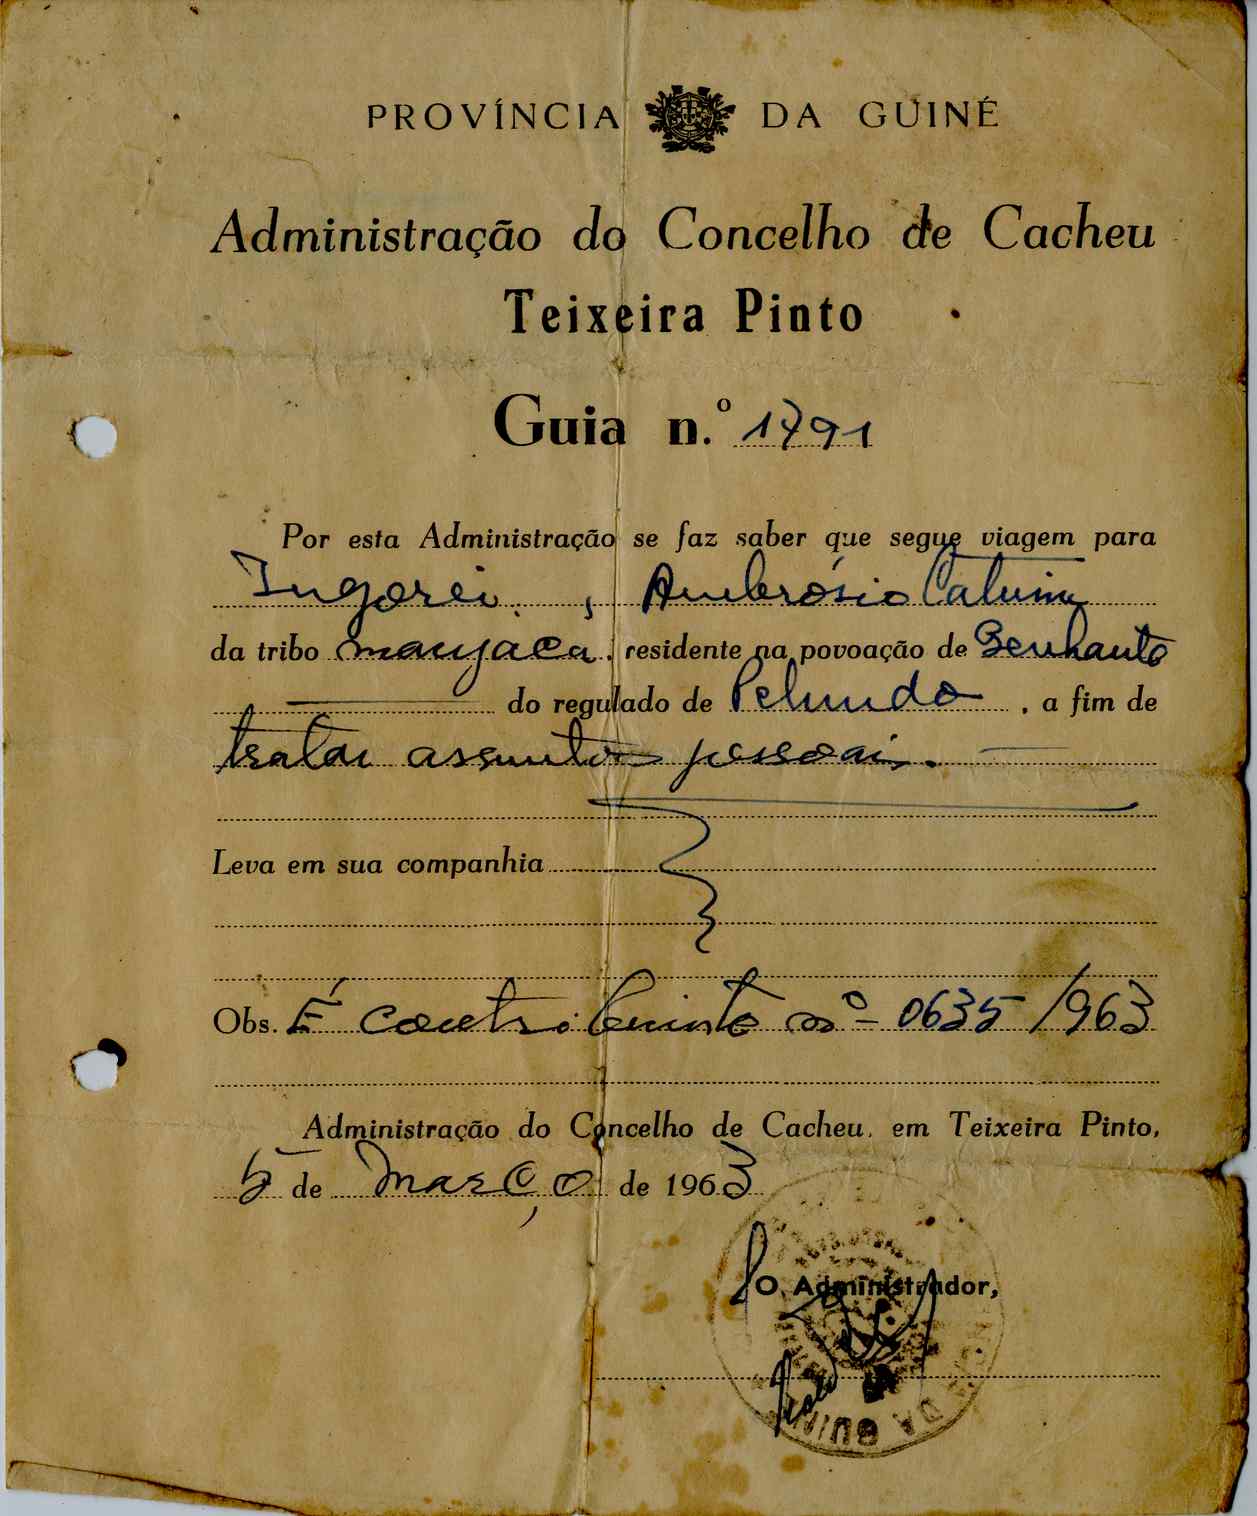 PROVÍNCIA DA GUINÉ
Administração do Concelho de Cacheu
Teixeira Pinto
Guia n.º 1791
Por esta Administração se faz saber que segue viagem para
Ingorei, Ambrósio Catumi
da tribo manjaca, residente na povoação de Benhanto
do regulado de Pelundo, a fim de
tratar assuntos pessoais.
Leva em sua companhia
Obs. É contribuinte nº 0635/963
Administração do Concelho de Cacheu, em Teixeira Pinto,
5 de Março de 1963
O Administrador,
DA GUINÉ